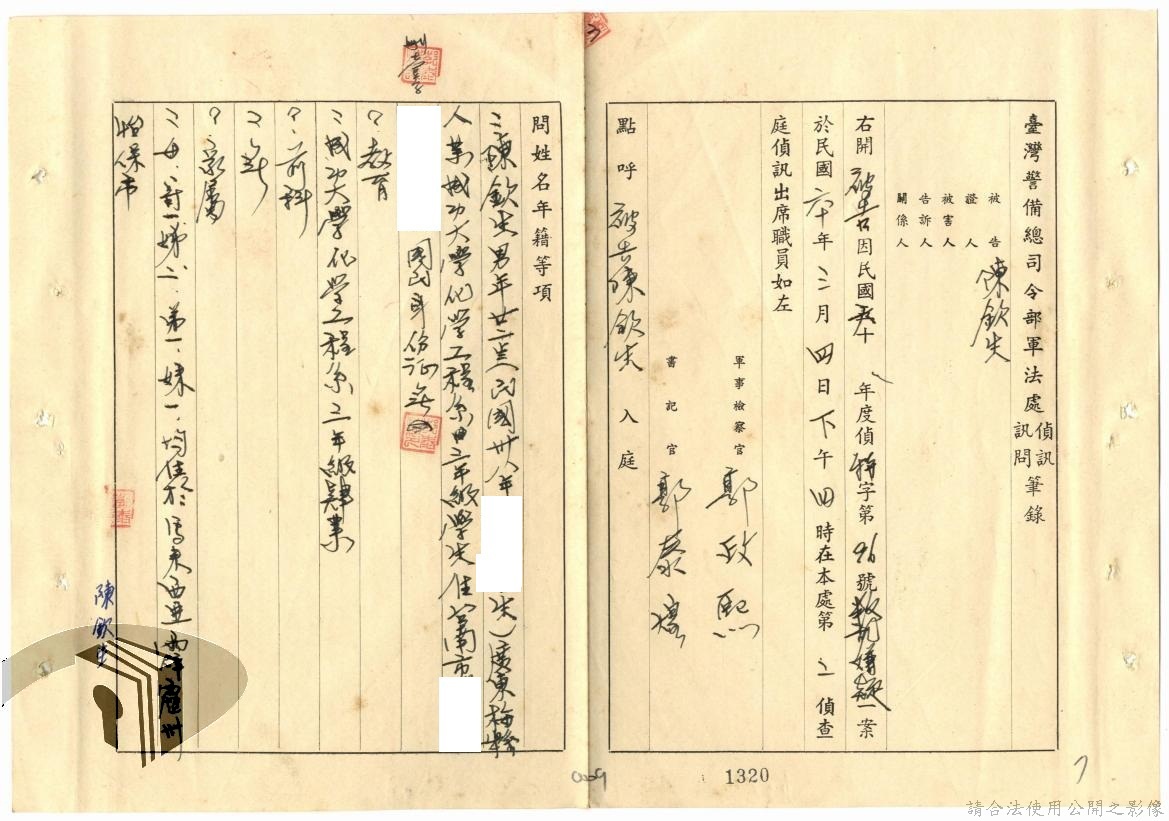 臺灣警備總司令部軍法處偵訊訊問筆錄
被告 陳欽生
證人
被害人
告訴人
關係人
右開被告因民國六十年度偵特字第96號叛亂嫌疑一案
於民國六十年三月四日下午四時在本處第 偵查
庭偵訊出席職員如左
軍事檢察官 郭政熙
書記官 郭
點呼 被告陳欽生 入庭
問姓名年籍等項
:陳欽生男年廿二歲民國卅八年 生)廣東梅縣
人業成功大學化學工程系三年級學生住台南市
國民身份證
?教育
:成功大學化學工程系三年級肄業
?前科
:無
?家屬
:母、哥一、姊二、弟一、妹一、均住於馬來西亞霹靂州
怡保市
陳欽生
1320
請合法使用公開之影像